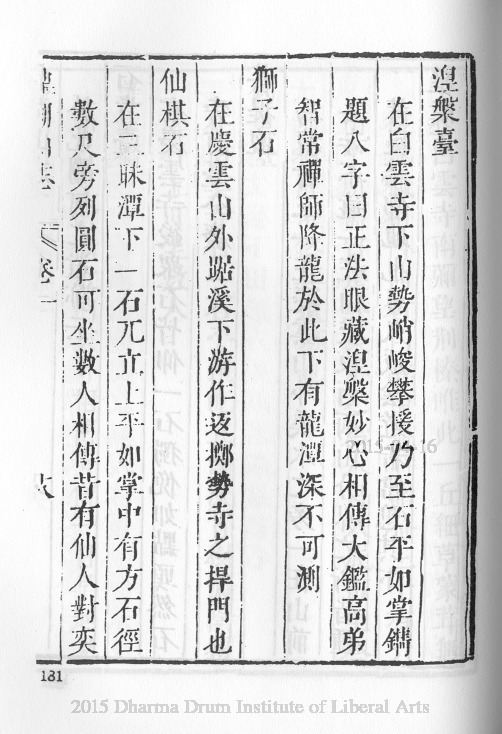 湼槃臺
在白雲寺下山勢峭峻攀援乃至石平如掌鐫
題八字曰正法眼藏湼槃妙心相傳大鑑高弟
智常禪師降龍於此下有龍潭深不可測
獅子石
在慶雲山外踞溪下游作返擲勢寺之捍門也
仙棋石
在三昧潭下一石兀立上平如掌中有方石徑
數尺旁列圓石可坐數人相傳昔有仙人對奕
山志 卷一
131
2015 Dharma Drum Institute of Liberal Arts